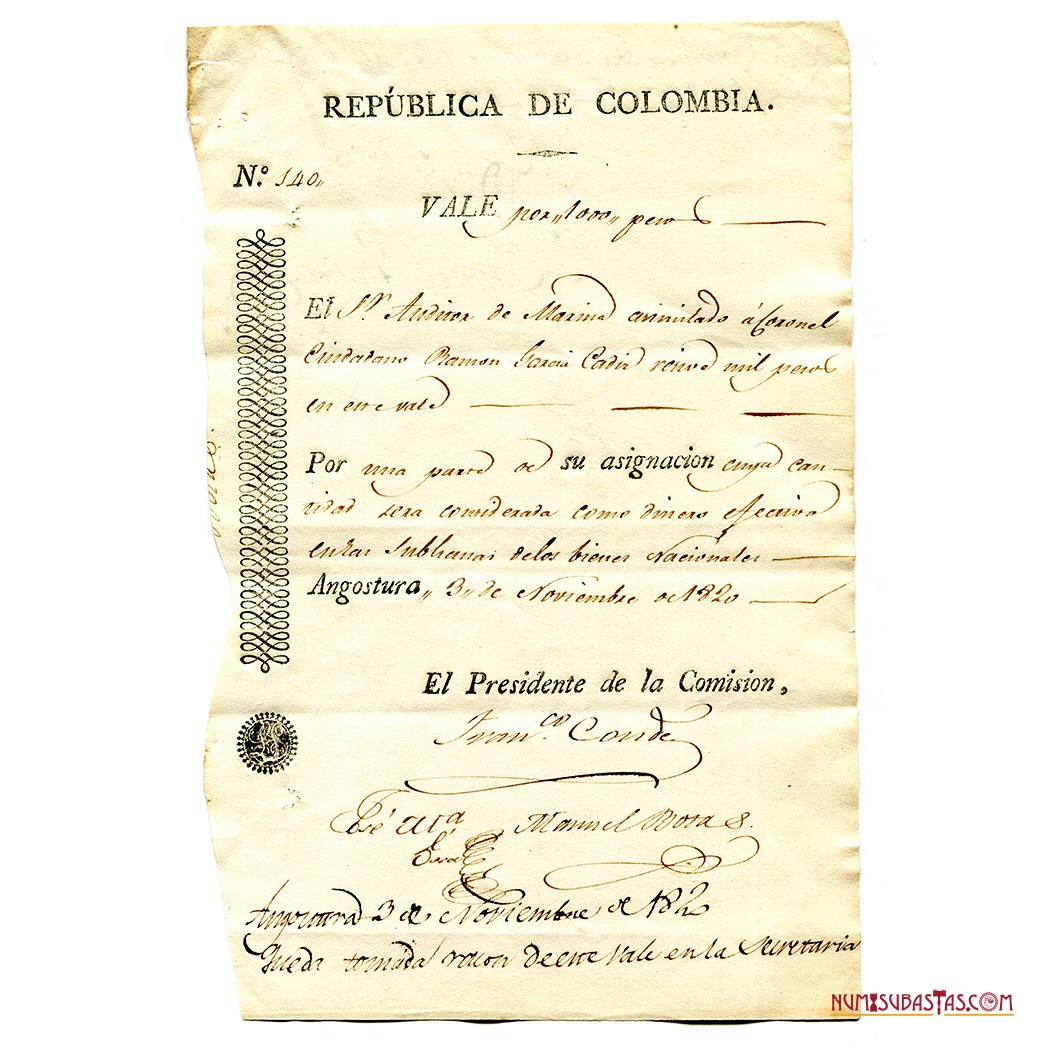 REPÚBLICA DE COLOMBIA.
N.º 140,,
VALE por,,1000,, pesos
El S.r Auditor de Marina asimilado á Coronel
Ciudadano Ramon Garcia Cadiz recive mil pesos
en este vale
Por una parte de su asignacion cuya can-
tidad sera considerada como dinero efectivo
en las Subhastas delos bienes Nacionales
Angostura,, 3,, de Noviembre de 1820
El Presidente de la Comision,
Fran.co Conde
José
Manuel
Angostura 3 de Noviembre de 1820
Queda tomada razon de este Vale en la Secretaria
NUMISUBASTAS.COM